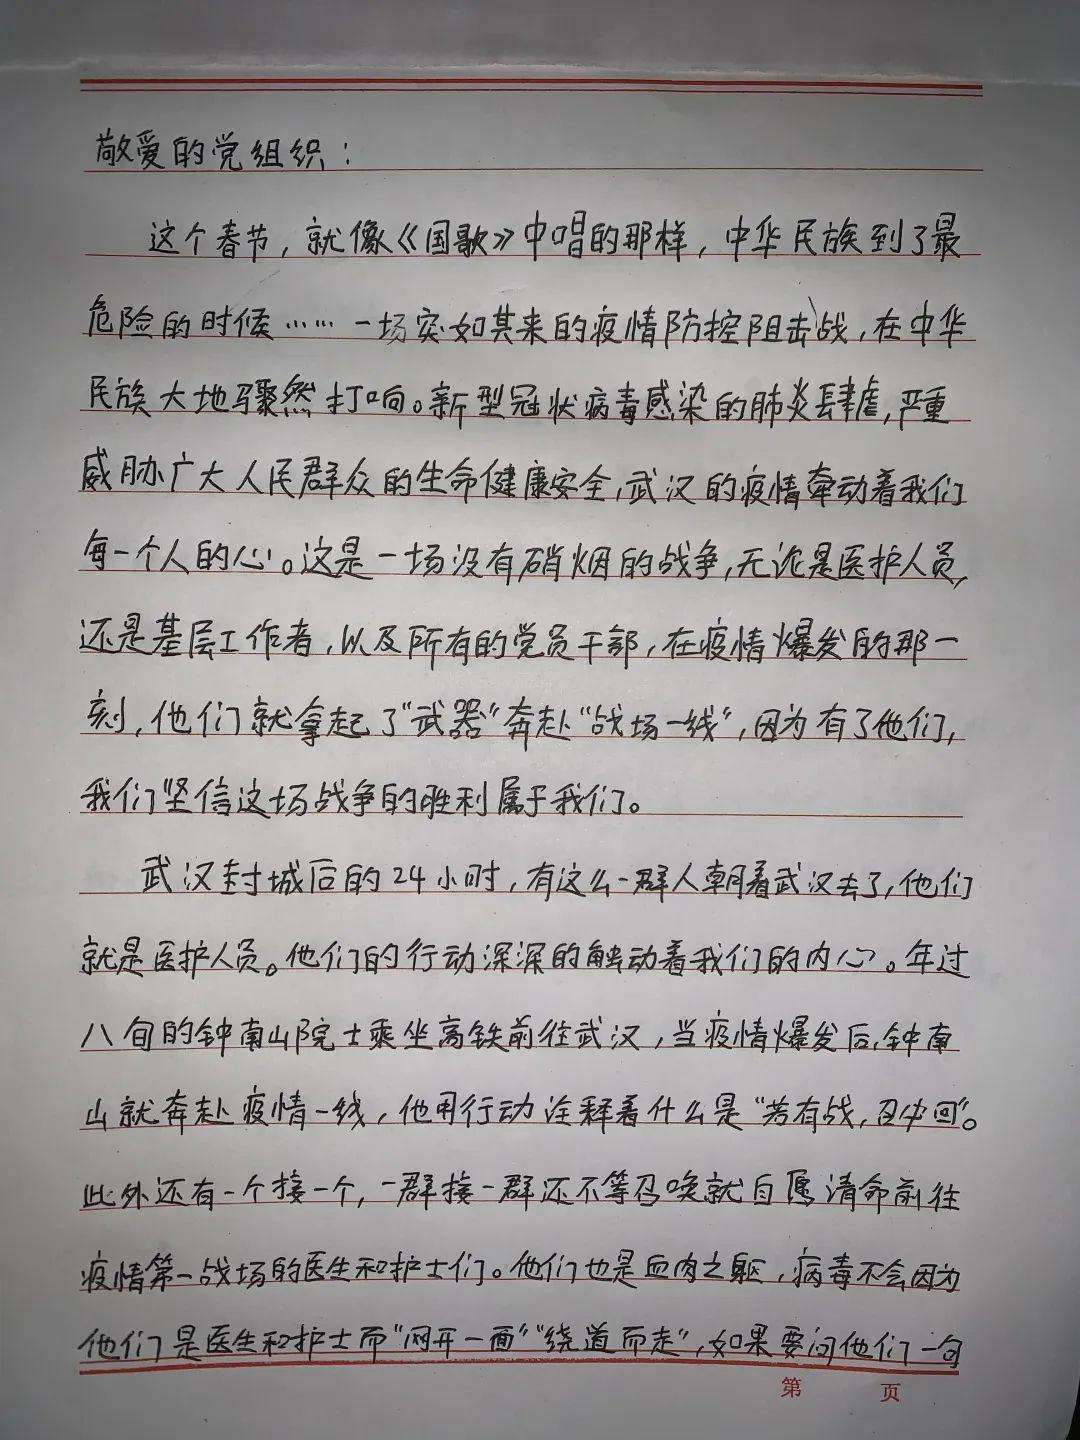 敬爱的党组织：
这个春节，就像《国歌》中唱的那样，中华民族到了最
危险的时候……一场突如其来的疫情防控阻击战，在中华
民族大地骤然打响。新型冠状病毒感染的肺炎肆虐，严重
威胁广大人民群众的生命健康安全，武汉的疫情牵动着我们
每一个人的心。这是一场没有硝烟的战争，无论是医护人员，
还是基层工作者，以及所有的党员干部，在疫情爆发的那一
刻，他们就拿起了“武器”奔赴“战场一线”，因为有了他们，
我们坚信这场战争的胜利属于我们。
武汉封城后的24小时，有这么一群人朝着武汉去了，他们
就是医护人员。他们的行动深深的触动着我们的内心。年过
八旬的钟南山院士乘坐高铁前往武汉，当疫情爆发后，钟南
山就奔赴疫情一线，他用行动诠释着什么是“若有战，召必回”。
此外还有一个接一个，一群接一群还不等召唤就自愿请命前往
疫情第一战场的医生和护士们。他们也是血肉之躯，病毒不会因为
他们是医生和护士而“网开一面”“绕道而走”，如果要问他们一句
第 页